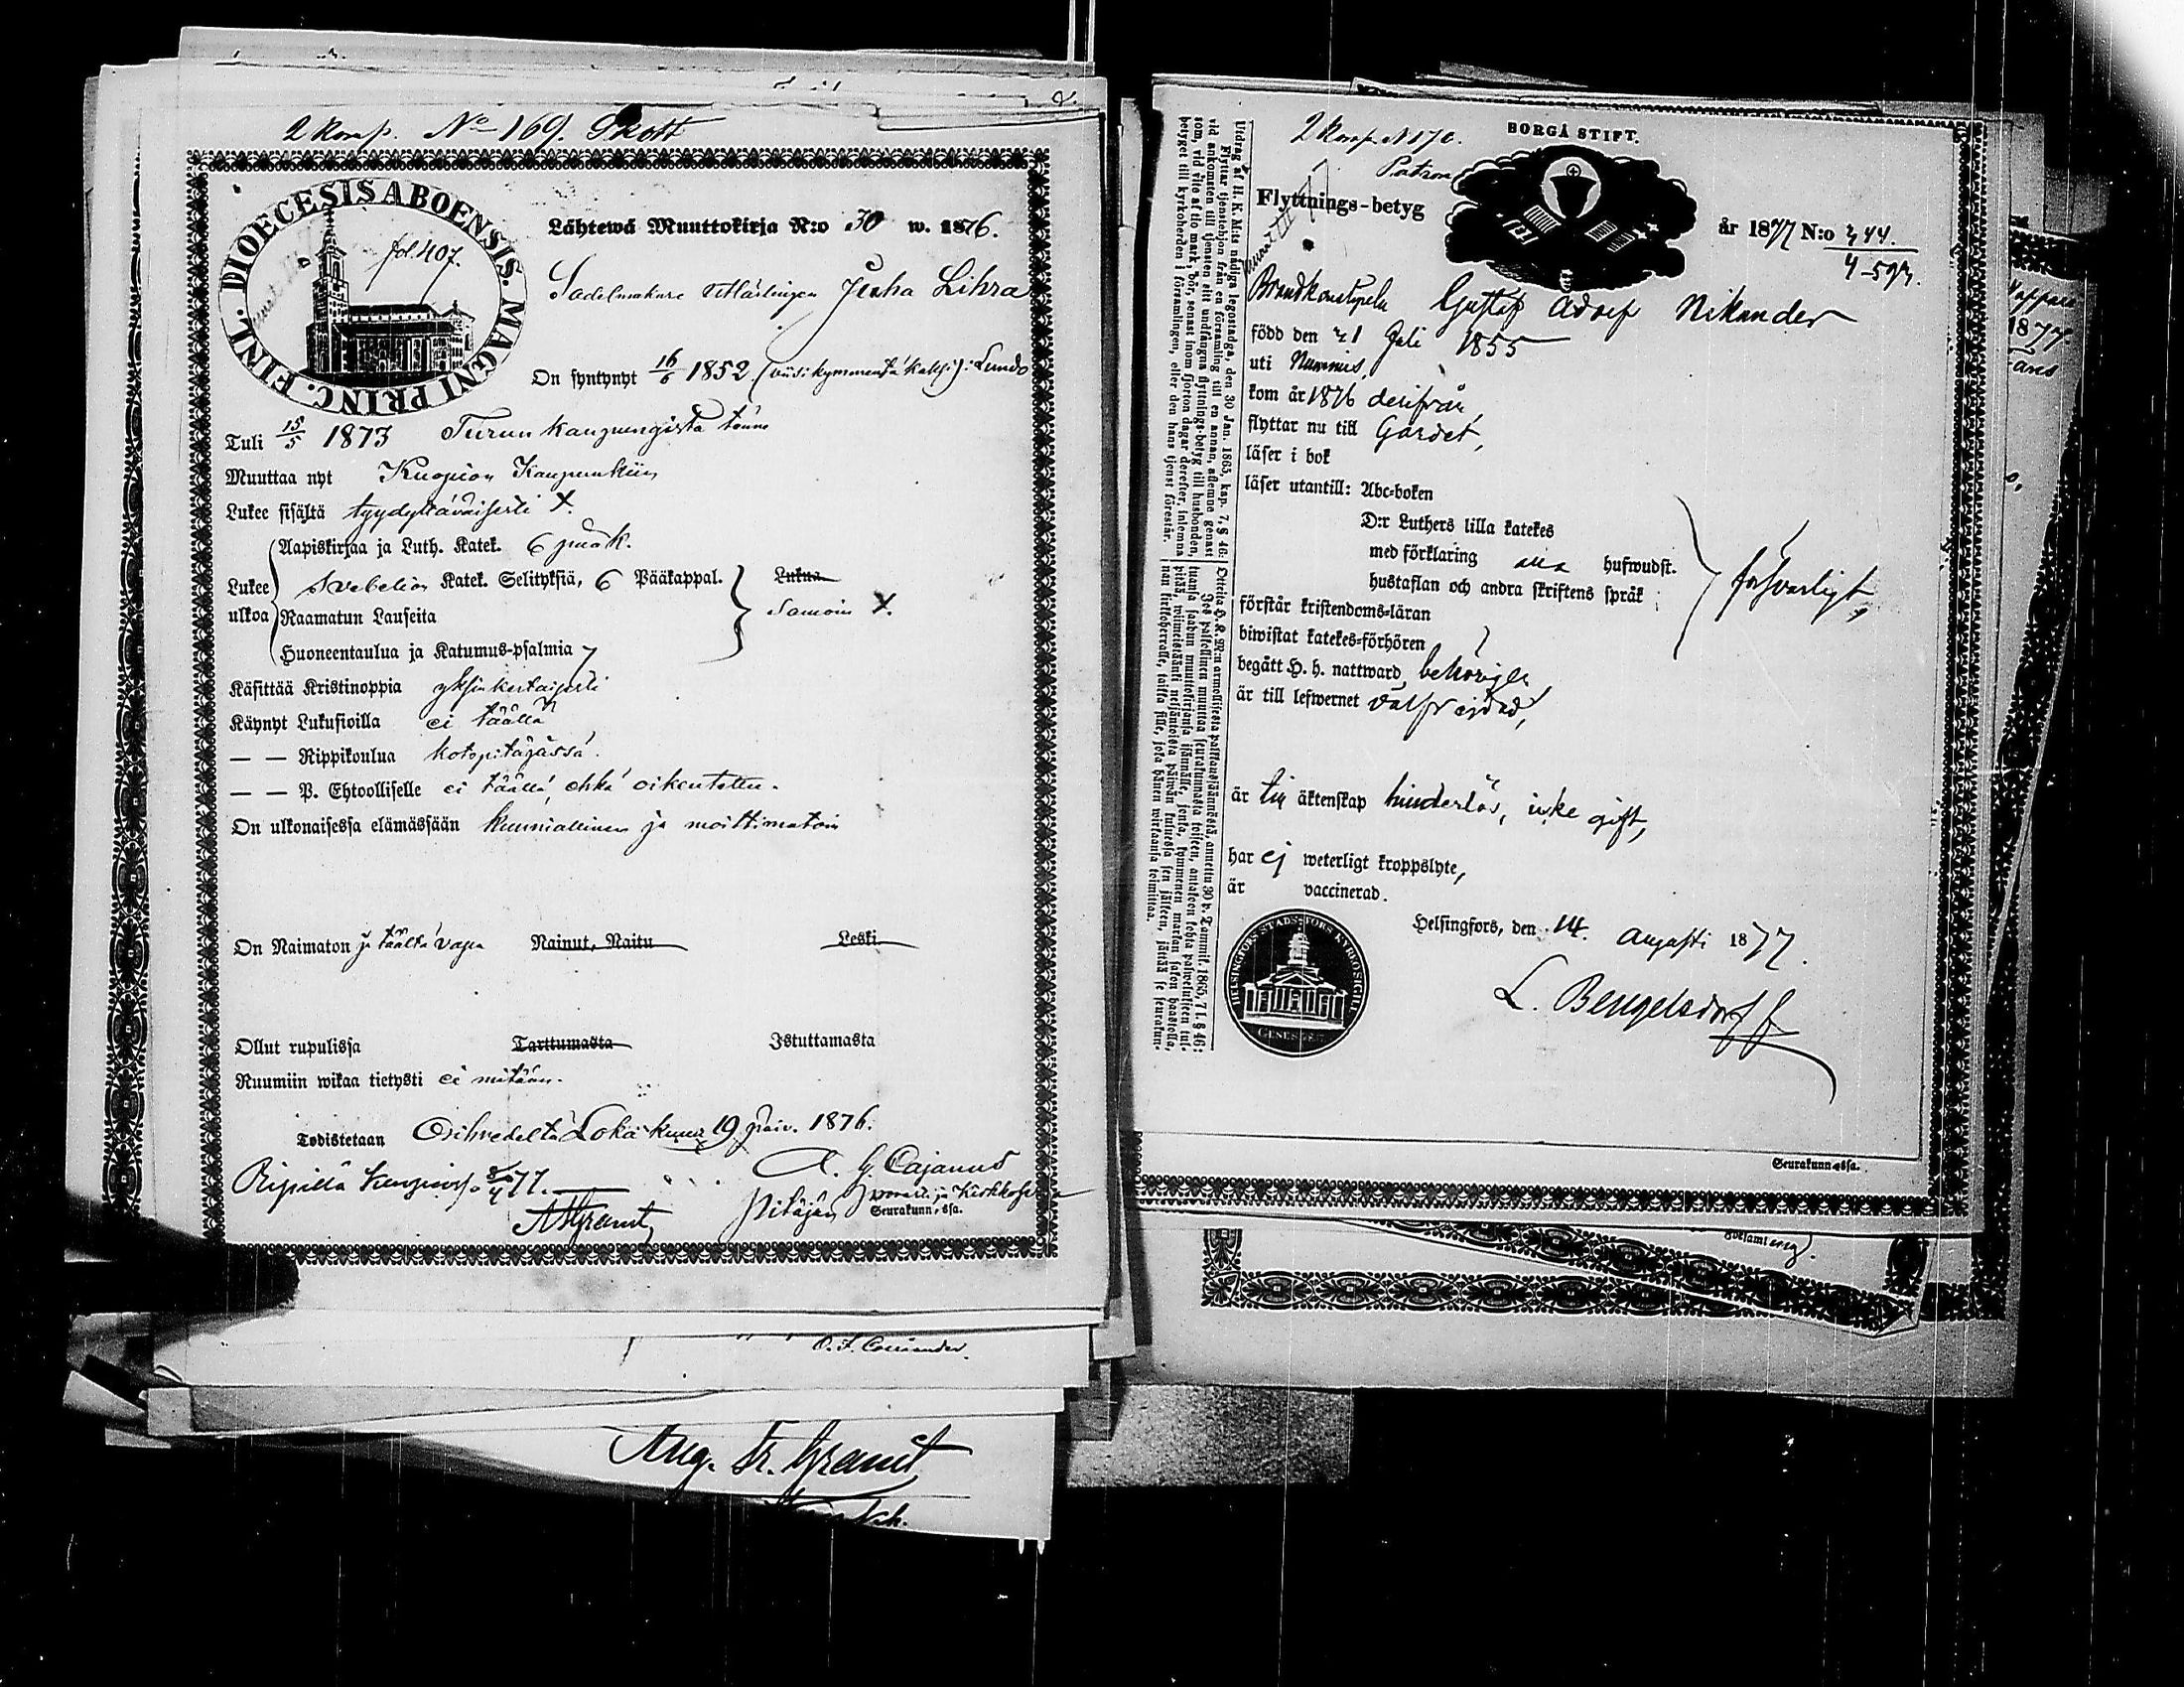 2 komp. No 169. Skott
DIOECESIS ABOENSIS. MAGNI PRINC. FINL.
fol. 407.
Lähtewä Muuttokirja N:o 30 w. 1876.
Sadelmakare Utlärlingen Juha Lihra
On syntynyt 16/6 1852 (viisikymmentä kaksi): Lundo
Tuli 15/5 1873 Turun kaupungista tänne
Muuttaa nyt Kuopion Kaupunkiin
Lukee sisältä tyydyttäväisesti X.
Aapiskirjaa ja Luth. Katek. 6 pääk.
Lukee Svebelion Katek. Selityksiä, 6 Pääkappal. Lukua
ulkoa Raamatun Lauseita Samoin X.
Huoneentaulua ja Katumus-psalmia
Käsittää Kristinoppia yksinkertaisesti
Käynyt Lukusioilla ei täällä
— — Rippikoulua kotopitäjässä.
— — P. Ehtoolliselle ei täällä, ehkä oikeutettu.
On ulkonaisessa elämässään kunniallinen ja moittimatoin
On Naimaton ja täältä vapa Nainut, Naitu Leski
Ollut rupulissa Tarttumasta Istuttamasta
Ruumiin wikaa tietysti ei mitään.
Todistetaan Orihvedeltä Lokakuun 19 päiv. 1876.
A. G. Cajanus
Ripillä Kuopiossa 8/4 77.
Pitäjän
Seurakunn. ssa.
Aug. Fr. Granit
2 Komp. N 170.
BORGÅ STIFT.
Flyttnings-betyg
år 1877 N:o 344.
4-593.
Brandkonstapeln Gustaf Adolf Nikander
född den 21 Juli 1855
uti Nummis,
kom år 1876 derifrån,
flyttar nu till Gardet,
läser i bok
läser utantill: Abc-boken
D:r Luthers lilla katekes
med förklaring alla hufwudst.
hustaflan och andra skriftens språk
försvarligt,
förstår kristendoms-läran
biwistat katekes-förhören
begått H. H. nattward behörigen
är till lefwernet välfrejdad,
är till äktenskap hinderlös, icke gift,
har ej weterligt kroppslyte,
är vaccinerad.
Helsingfors, den 14. Augusti 1877.
L. Bengelsdorff
Seurakunn essa.
Utdrag af H. K. M:ts nådiga legostadga, den 30 Jan. 1865, kap. 7, § 46:
Flyttar tjenstehjon från en församling till en annan, aflemne genast
vid ankomsten till tjensten sitt undfångna flyttnings-betyg till husbonden,
som, vid vite af tio mark, bör, senast inom fjorton dagar derefter, inlemna
betyget till kyrkoherden i församlingen, eller den hans tjenst förestår.